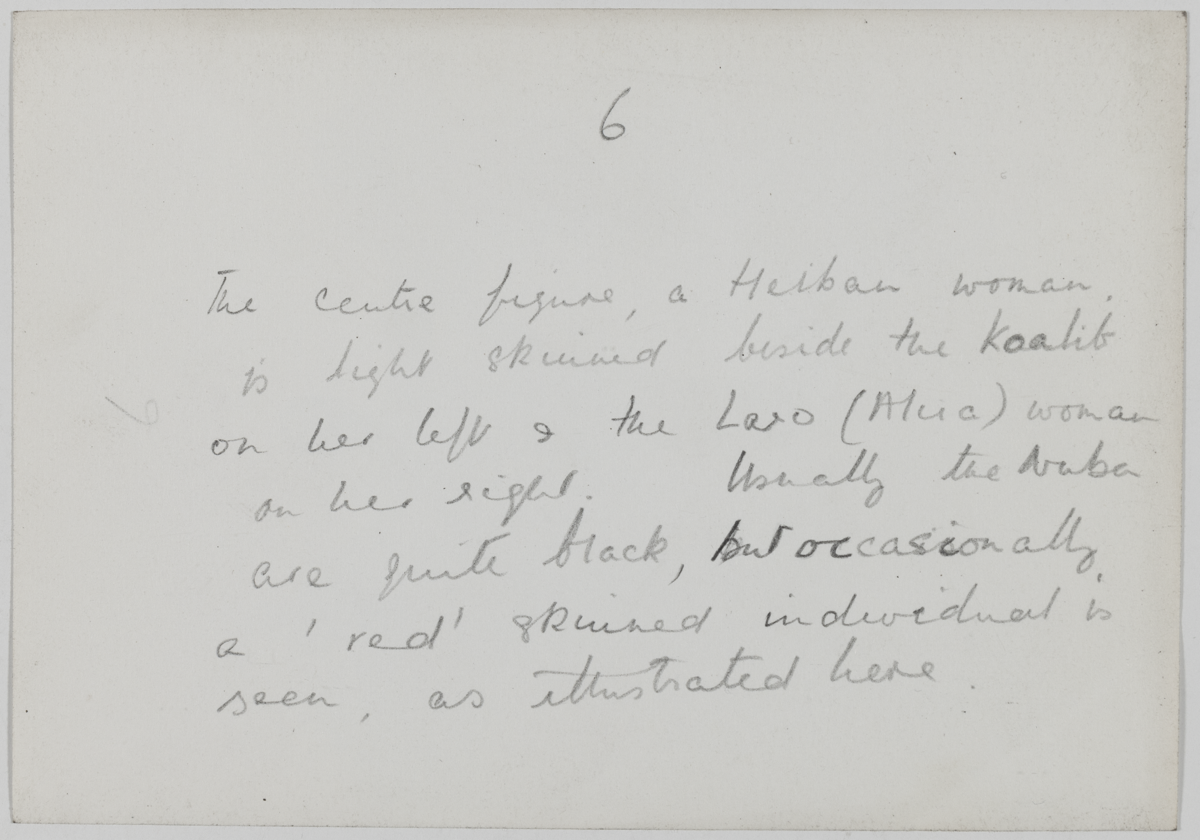 6
The centre figure, a Heiban woman,
is light skinned beside the Koalib
6
on her left & the Laro (Alira) woman
on her right. Usually the Nuba
are quite black, but occasionally,
a 'red' skinned individual is
seen, as illustrated here.